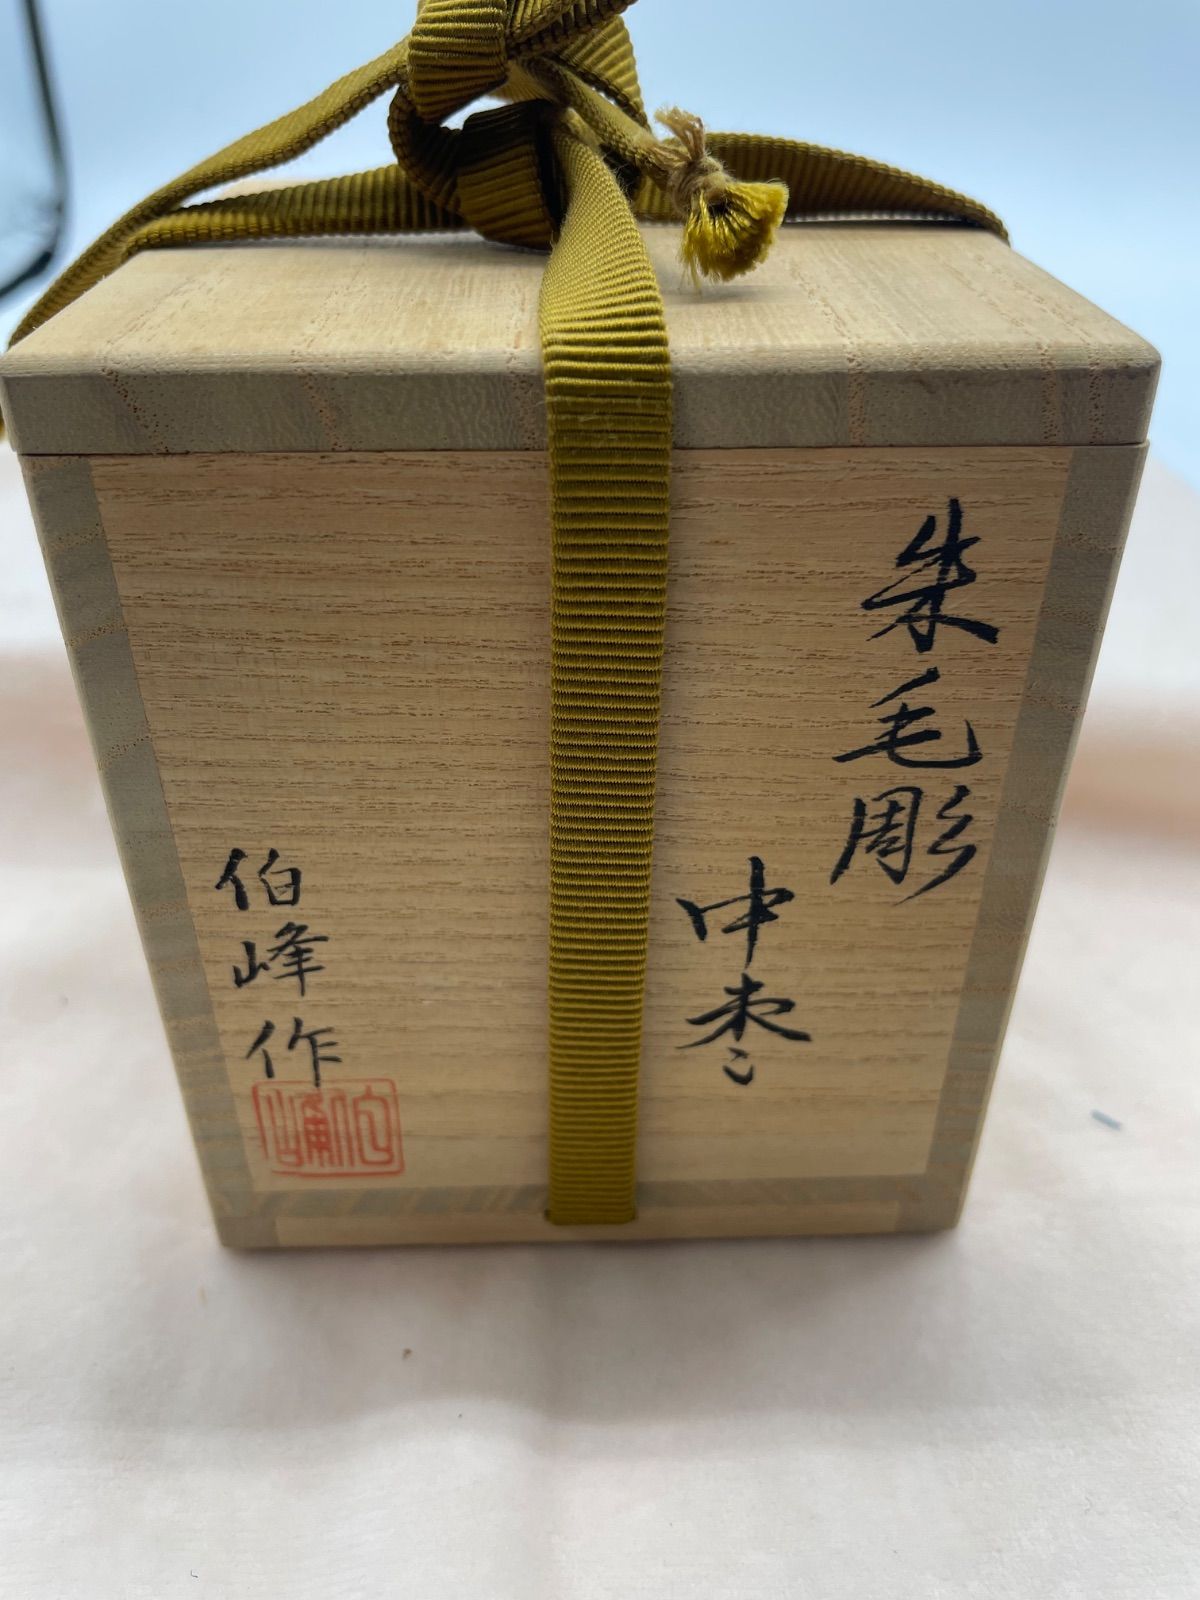 朱毛彫
中棗
伯峰作
伯峰